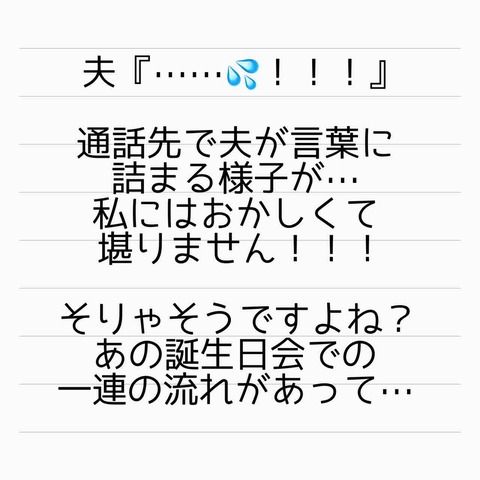 夫『……💦！！！』
通話先で夫が言葉に
詰まる様子が…
私にはおかしくて
堪りません！！！
そりゃそうですよね？
あの誕生日会での
一連の流れがあって…